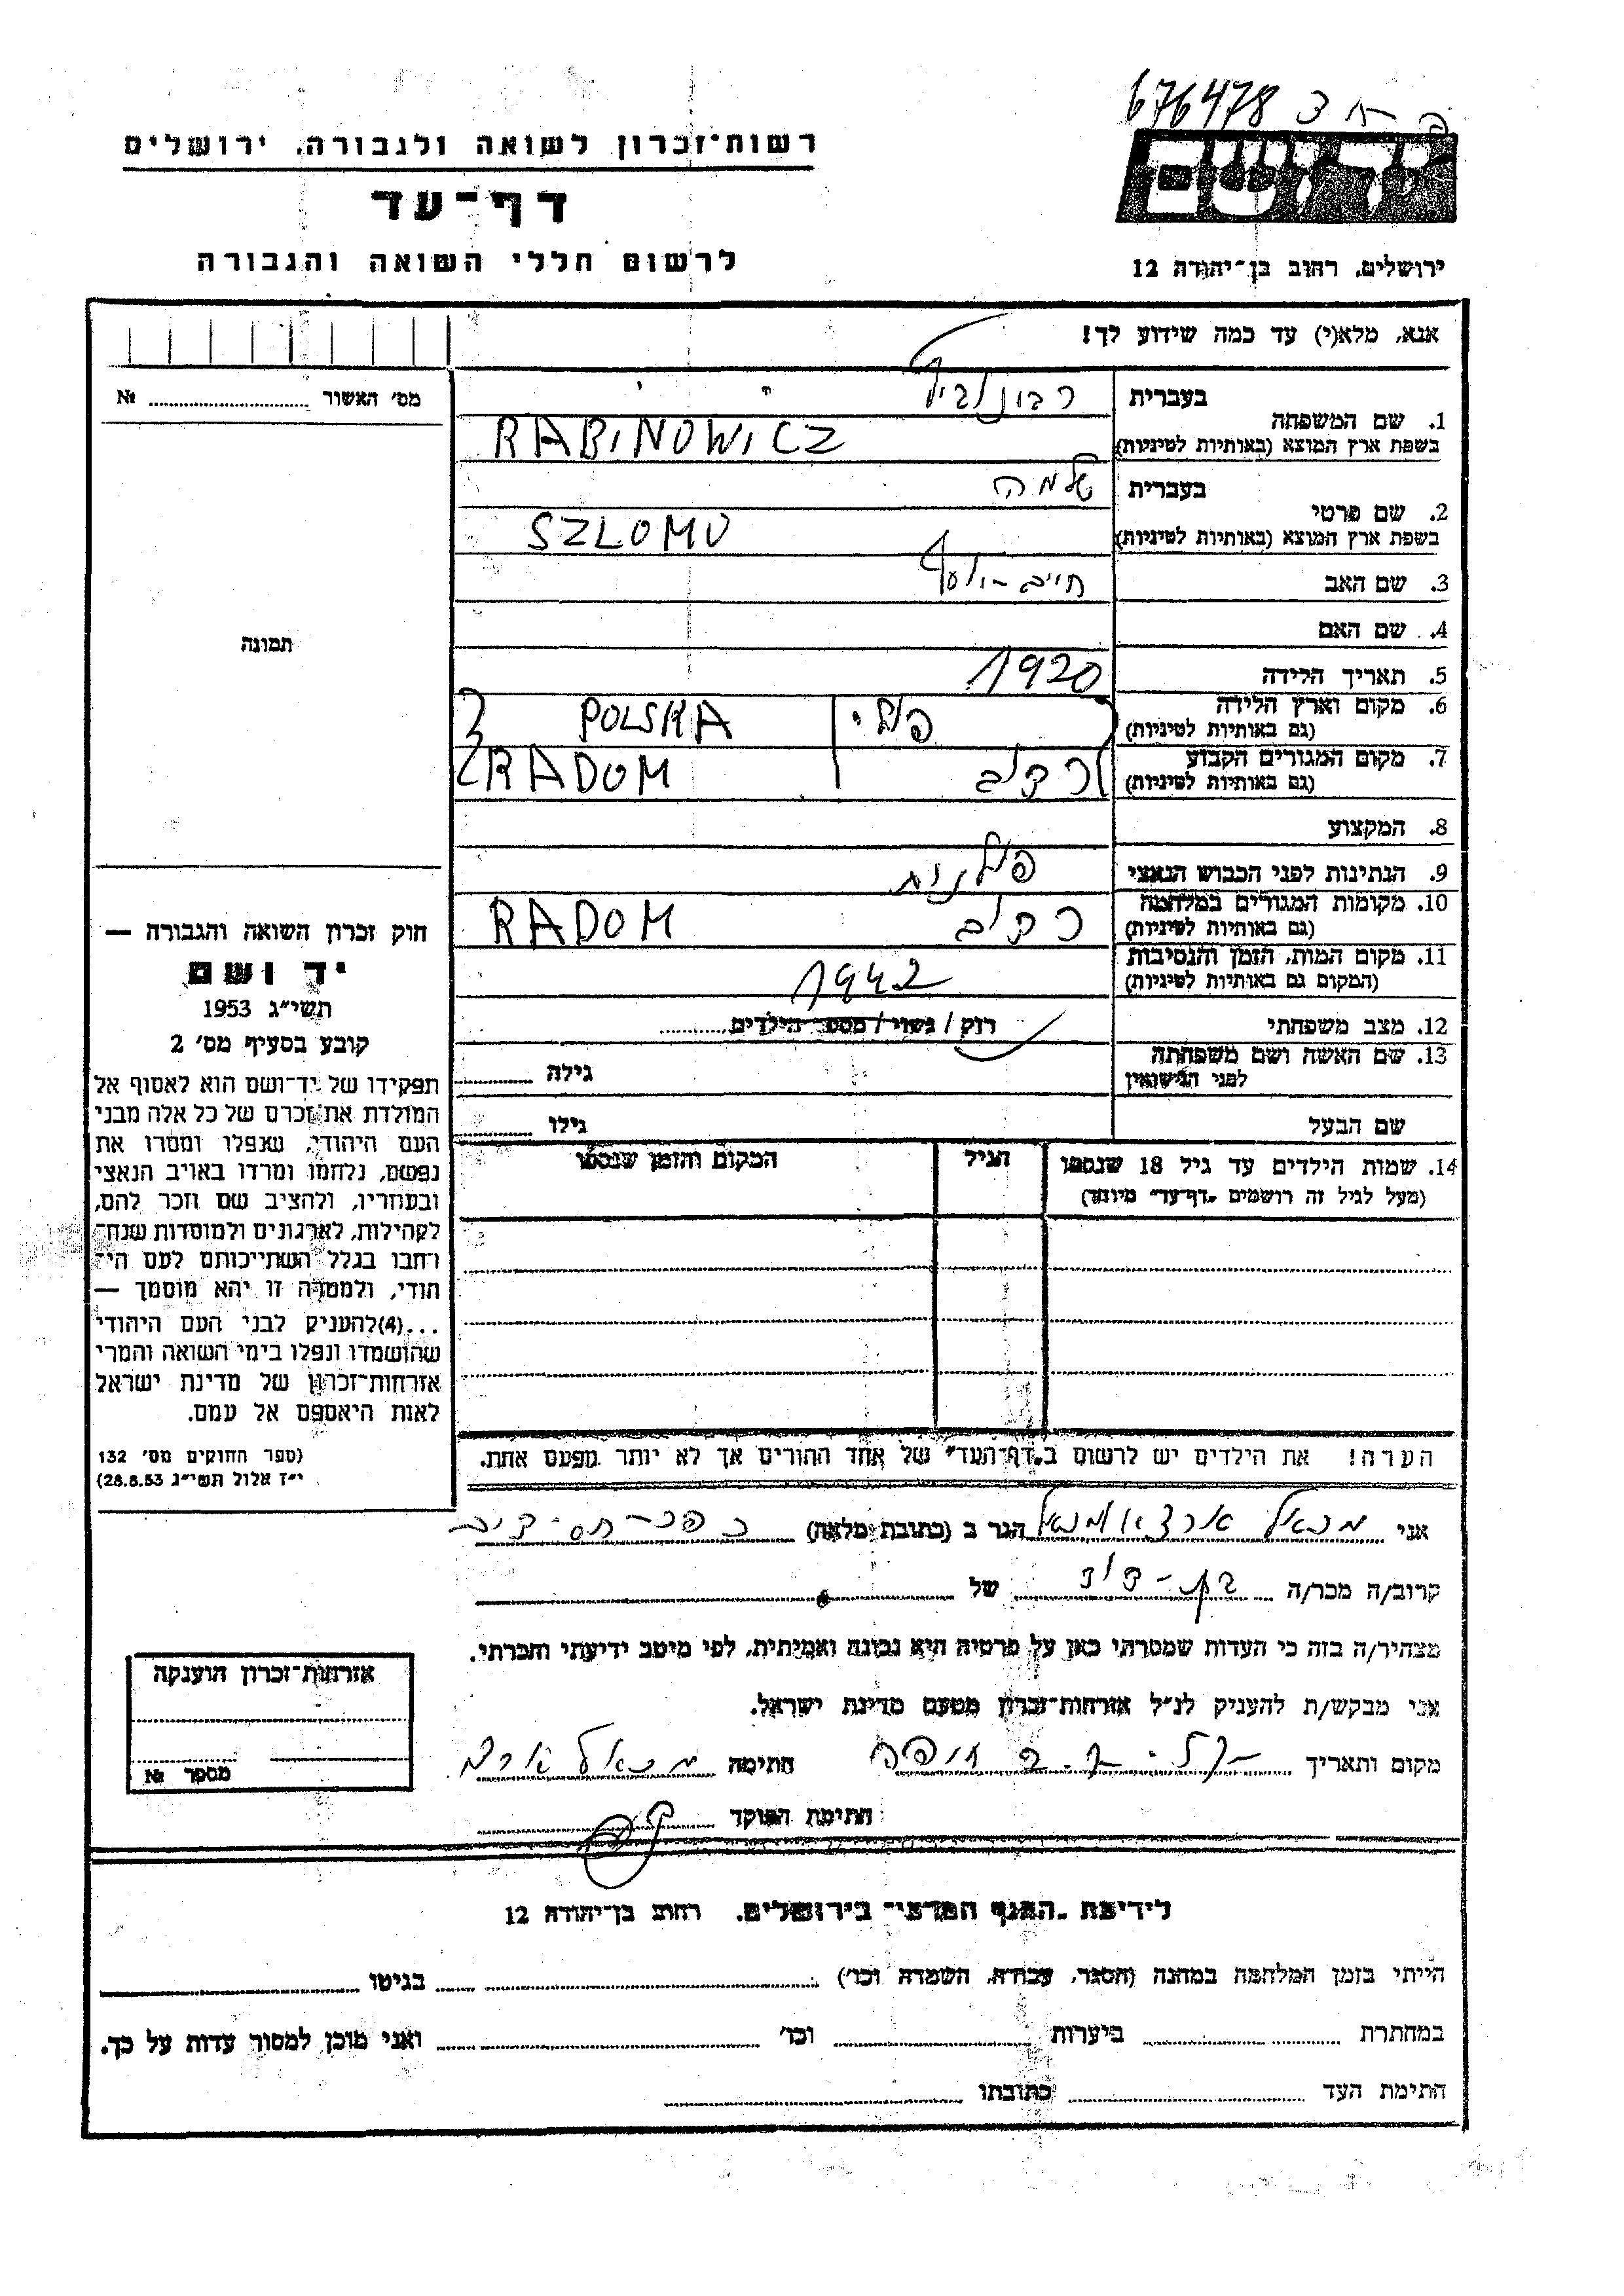 676478
רשות־זכרון לשואה ולגבורה, ירושלים
דף־עד
לרשום חללי השואה והגבורה
יד ושם
ירושלים, רחוב בן־יהודה 12
אנא, מלא(י) עד כמה שידוע לך!
מס׳ האשור № 
1. שם המשפחה בעברית
בשפת ארץ המוצא (באותיות לטיניות) RABINOWICZ
2. שם פרטי בעברית שלמה
בשפת ארץ המוצא (באותיות לטיניות) SZLOMO
3. שם האב
4. שם האם
תמונה
5. תאריך הלידה 1920
6. מקום וארץ הלידה
(גם באותיות לטיניות) POLSKA
7. מקום המגורים הקבוע
(גם באותיות לטיניות) RADOM
8. המקצוע
9. הנתינות לפני הכבוש הנאצי פולנית
10. מקומות המגורים במלחמה
(גם באותיות לטיניות) RADOM
11. מקום המות, הזמן והנסיבות
(המקום גם באותיות לטיניות) 1942
12. מצב משפחתי רוק / נשוי / מספר הילדים
13. שם האשה ושם משפחתה
לפני הנישואין גילה
שם הבעל גילו
14. שמות הילדים עד גיל 18 שנספו הגיל המקום והזמן שנספו
(מעל לגיל זה רושמים „דף־עד״ מיוחד)
הערה! את הילדים יש לרשום ב„דף־העד״ של אחד ההורים אך לא יותר מפעם אחת.
חוק זכרון השואה והגבורה —
יד ושם
תשי״ג 1953
קובע בסעיף מס׳ 2
תפקידו של יד־ושם הוא לאסוף אל
המולדת את־זכרם של כל אלה מבני
העם היהודי, שנפלו ומסרו את
נפשם, נלחמו ומרדו באויב הנאצי
ובעוזריו, ולהציב שם וזכר להם,
לקהילות, לארגונים ולמוסדות שנח־
רבו בגלל השתייכותם לעם הי־
הודי, ולמטרה זו יהא מוסמך —
...(4)להעניק לבני העם היהודי
שהושמדו ונפלו בימי השואה והמרי
אזרחות־זכרון של מדינת ישראל
לאות היאספם אל עמם.
(ספר החוקים מס׳ 132
י״ז אלול תשי״ג 28.8.53)
אני הגר ב (כתובת מלאה)
קרוב/ה מכר/ה בן-דוד של
מצהיר/ה בזה כי העדות שמסרתי כאן על פרטיה היא נכונה ואמיתית, לפי מיטב ידיעתי והכרתי.
אני מבקש/ת להעניק לנ״ל אזרחות־זכרון מטעם מדינת ישראל.
מקום ותאריך חתימה
חתימת הפוקד
אזרחות־זכרון הוענקה
מספר №
לידיעת „האגף המדעי״ בירושלים, רחוב בן־יהודה 12
הייתי בזמן המלחמה במחנה (הסגר, עבודה, השמדה וכו׳) בגיטו
במחתרת ביערות וכו׳ ואני מוכן למסור עדות על כך.
חתימת העד כתובתו